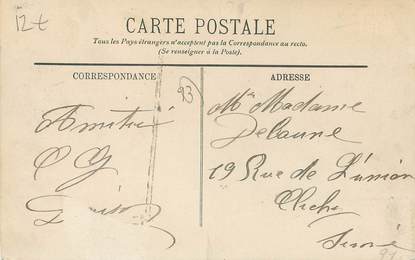 12t
CARTE POSTALE
Tous les Pays étrangers n'acceptent pas la Correspondance au recto.
(Se renseigner à la Poste).
CORRESPONDANCE
93
Amitié
ADRESSE
Mme Madame
Delaune
19 Rue de l'union
Clichy
Seine